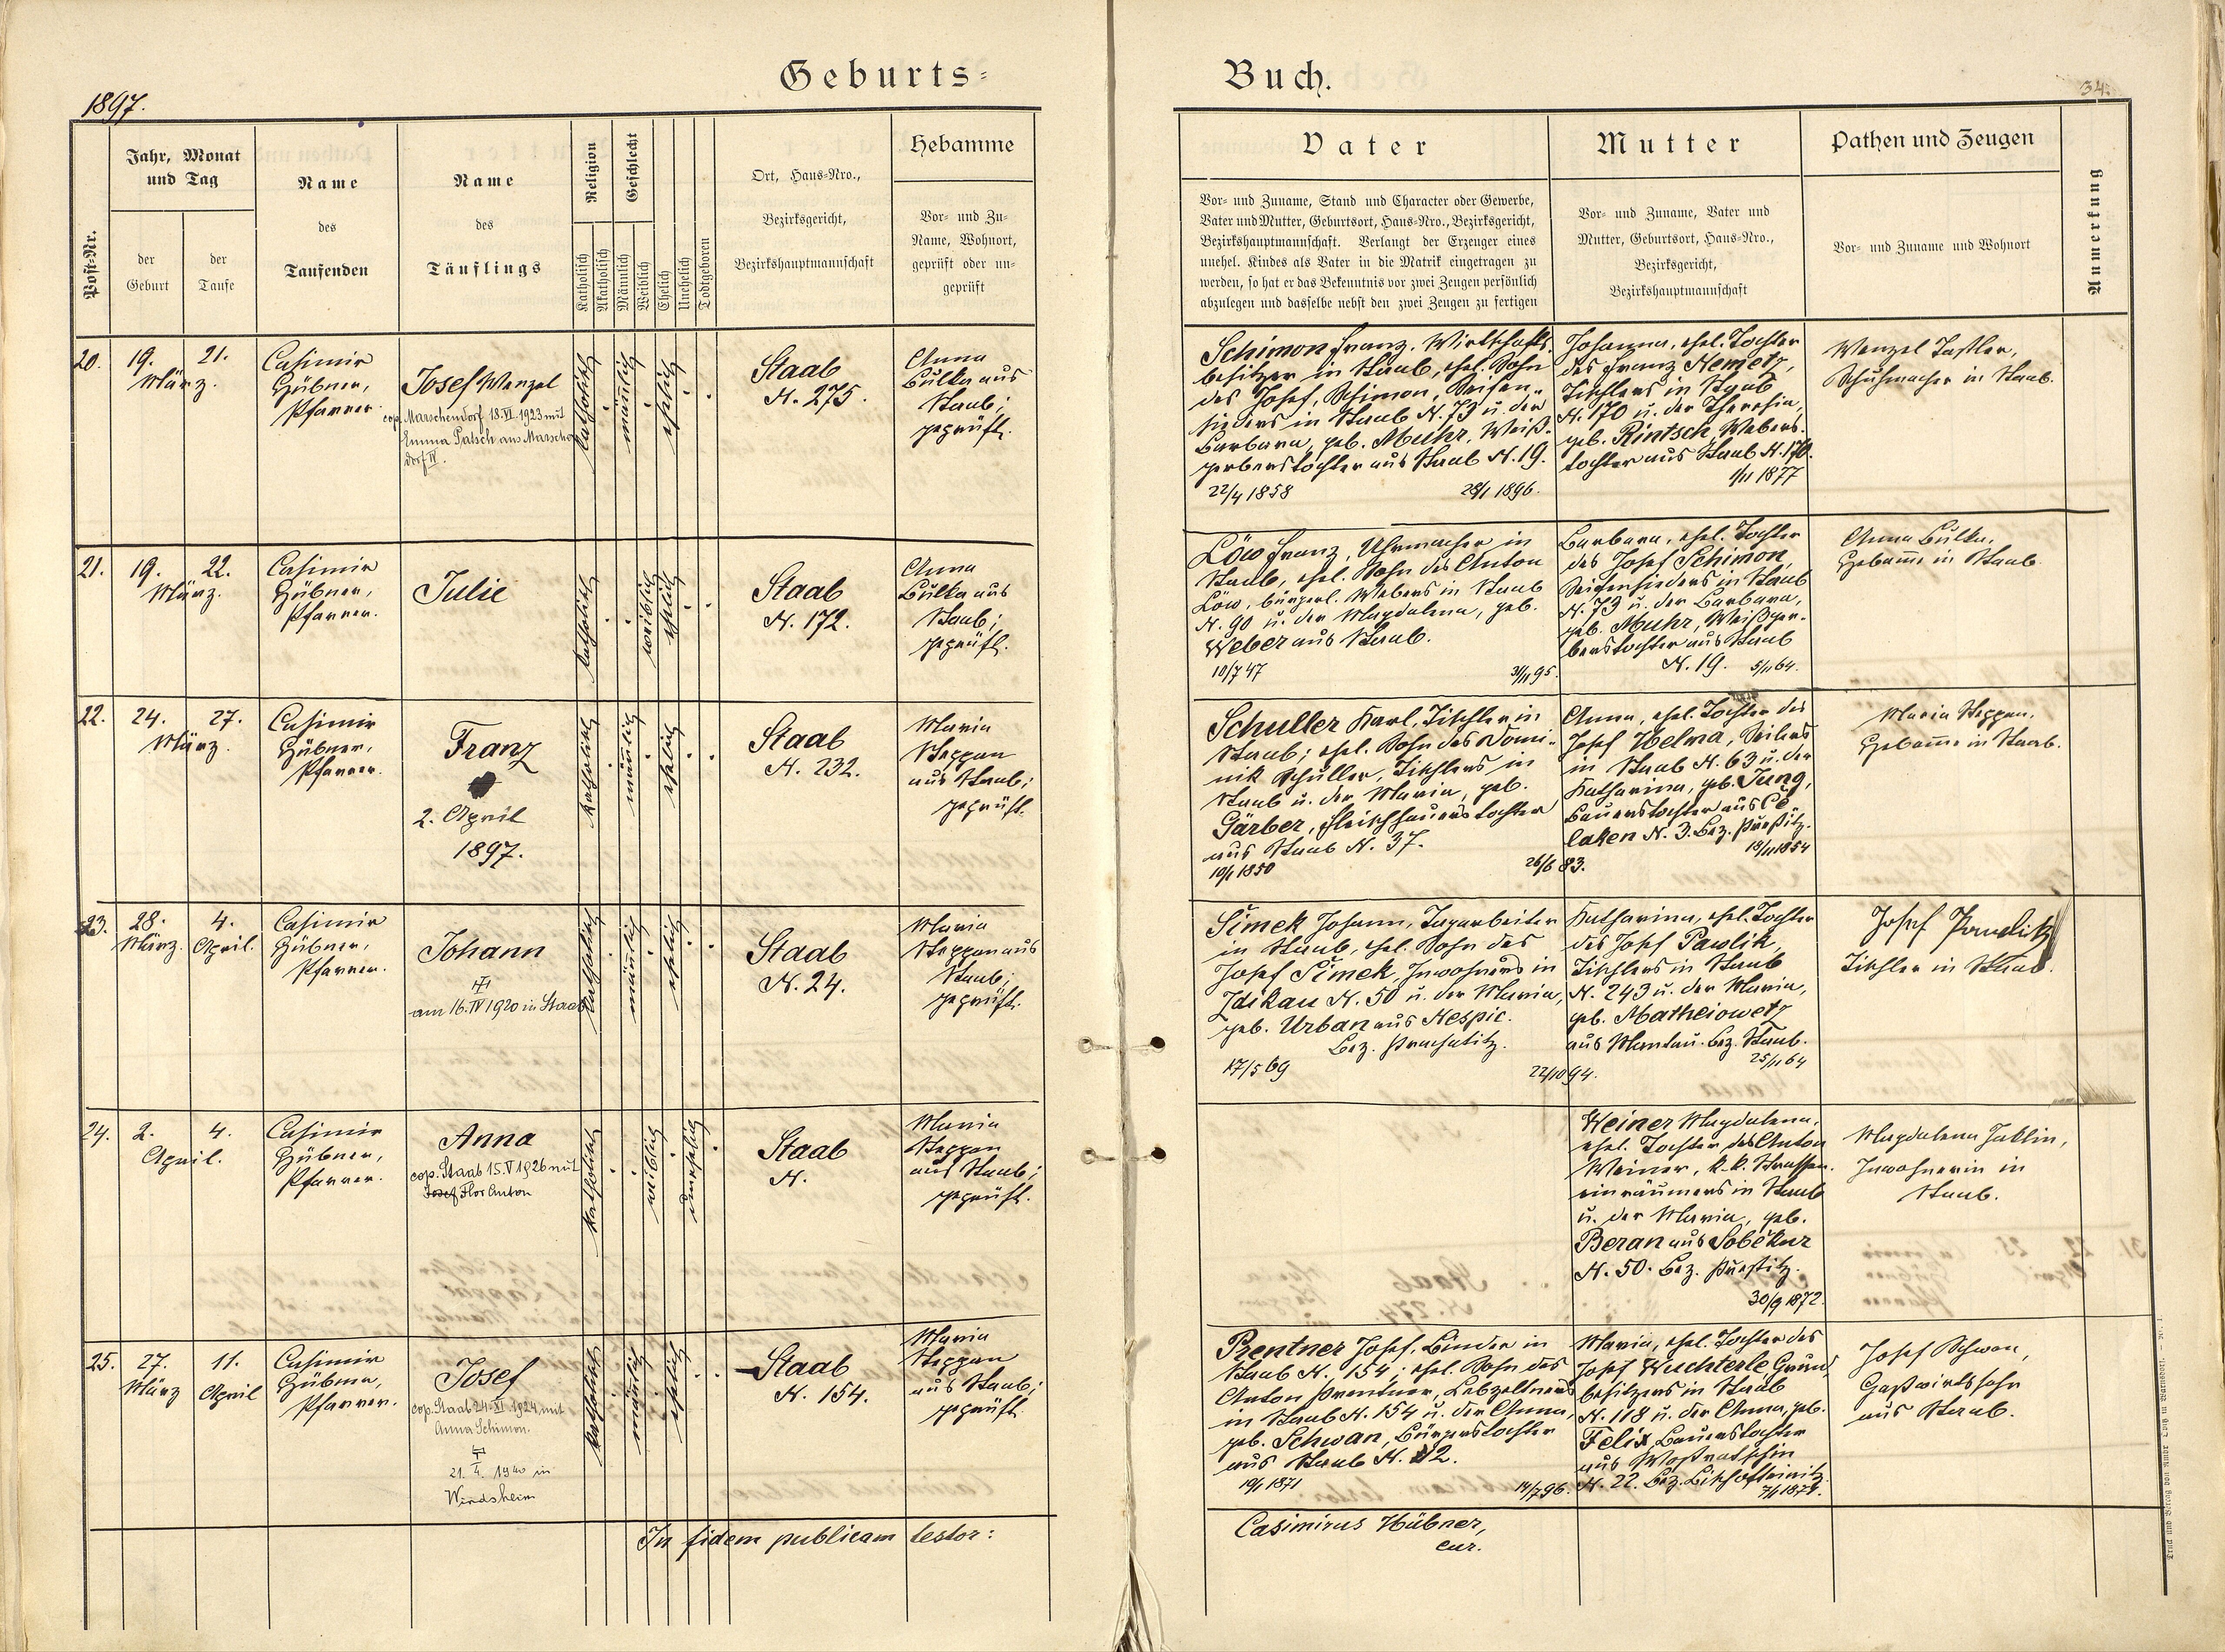 Geburts=
Buch.
1897.
34.
Post-Nr.
Jahr, Monat
und Tag
der
Geburt
der
Taufe
Name
des
Taufenden
Name
des
Täuflings
Religion
Katholisch
Akatholisch
Geschlecht
Männlich
Weiblich
Ehelich
Unehelich
Todtgeboren
Ort, Haus=Nro.,
Bezirksgericht,
Bezirkshauptmannschaft
Hebamme
Vor= und Zu=
Name, Wohnort,
geprüft oder un=
geprüft
Vater
Vor= und Zuname, Stand und Character oder Gewerbe,
Vater und Mutter, Geburtsort, Haus=Nro., Bezirksgericht,
Bezirkshauptmannschaft. Verlangt der Erzeuger eines
unehel. Kindes als Vater in die Matrik eingetragen zu
werden, so hat er das Bekenntnis vor zwei Zeugen persönlich
abzulegen und dasselbe nebst den zwei Zeugen zu fertigen
Mutter
Vor= und Zuname, Vater und
Mutter, Geburtsort, Haus=Nro.,
Bezirksgericht,
Bezirkshauptmannschaft
Pathen und Zeugen
Vor= und Zuname und Wohnort
Anmerkung
20.
19. 21.
März.
Casimir
Hübner,
Pfarrer.
Josef Wenzel
cop. Marschendorf 18.VI.1923 mit
Emma Patsch aus Marschen
dorf IV.
katholisch
männlich
ehelich
Staab
N. 275.
Anna
Bulka aus
Staab;
geprüft.
Schimon Franz, Wirtschafts-
besitzer in Staab, ehel. Sohn
des Josef Schimon, Seifen-
sieders in Staab N. 73 u. der
Barbara, geb. Muhr, Weiß-
gerberstochter aus Staab N. 19.
22/4 1858 28/1 1896.
Johanna, ehel. Tochter
des Franz Nemetz,
Tischlers in Staab
N. 170 u. der Theresia,
geb. Rintsch, Webers-
tochter aus Staab N. 170.
1/11 1877
Wenzel
Schuhmacher in Staab.
21.
19. 22.
März.
Casimir
Hübner,
Pfarrer.
Julie
katholisch
weiblich
ehelich
Staab
N. 172.
Anna
Bulka aus
Staab;
geprüft.
Löw Franz, Uhrmacher in
Staab, ehel. Sohn des Anton
Löw, bürgerl. Webers in Staab
N. 90 u. der Magdalena, geb.
Weber aus Staab.
10/7 47 3/11 95.
Barbara, ehel. Tochter
des Josef Schimon,
Seifensieders in Staab
N. 73 u. der Barbara,
geb. Muhr, Weißger-
berstochter aus Staab
N. 19. 5/11 64.
Anna Bulka,
Hebamme in Staab.
22.
24. 27.
März.
Casimir
Hübner,
Pfarrer.
Franz
2. April
1897.
katholisch
männlich
ehelich
Staab
N. 232.
Maria
Steppan
aus Staab;
geprüft.
Schuller Karl, Tischler in
Staab; ehel. Sohn des Domi-
nik Schuller, Tischlers in
Staab u. der Maria, geb.
Gärber, Fleischhauerstochter
aus Staab N. 37.
10/1 1850 26/6 83.
Anna, ehel. Tochter des
Josef Helma, Seilers
in Staab N. 63 u. der
Katharina, geb. Jung,
Bauerstochter aus Ce-
laken N. 3. Bez. Přestitz.
18/11 1854
Maria Steppan,
Hebamme in Staab.
23.
28. 4.
März. April.
Casimir
Hübner,
Pfarrer.
Johann
am 16.IV 1920 in Staab
katholisch
männlich
ehelich
Staab
N. 24.
Maria
Steppan aus
Staab;
geprüft.
Šimek Johann, Tagarbeiter
in Staab, ehel. Sohn des
Josef Šimek, Inwohners in
Zdikau N. 50 u. der Maria,
geb. Urban aus Nespic.
Bez. Prachatitz.
17/5 69 22/10 94.
Katharina, ehel. Tochter
des Josef Pawlik,
Tischlers in Staab
N. 243 u. der Maria,
geb. Matheiowetz
aus Mantau. Bez. Staab.
25/11 64
Josef Pawlik
Tischler in Staab.
24.
2. 4.
April.
Casimir
Hübner,
Pfarrer.
Anna
cop. Staab 15.V 1926 mit
Josef Flor Anton
katholisch
weiblich
unehelich
Staab
N.
Maria
Steppan
aus Staab;
geprüft.
Weiner Magdalena,
ehel. Tochter des Anton
Weiner, k.k. Strassen-
einräumers in Staab
u. der Maria, geb.
Beran aus Soběkur
N. 50. Bez. Přestitz.
30/9 1872.
Magdalena
Inwohnerin in
Staab.
25.
27. 11.
März April
Casimir
Hübner,
Pfarrer.
Josef
cop. Staab 24.XI.1924 mit
Anna Schimon.
21. 1940 in
Windsheim
katholisch
männlich
ehelich
Staab
N. 154.
Maria
Steppan
aus Staab;
geprüft.
Prentner Josef, Binder in
Staab N. 154; ehel. Sohn des
Anton Prentner, Lebzeltners
in Staab N. 154 u. der Anna,
geb. Schwan, Bürgerstochter
aus Staab N. 2.
19/1 1871 14/7 96.
Maria, ehel. Tochter des
Josef Wuchterle, Grund-
besitzers in Staab
N. 118 u. der Anna, geb.
Felix, Bauerstochter
aus
N. 22. Bez. Bischofteinitz.
Josef Schwan,
Gastwirtssohn
aus Staab.
In fidem publicam testor:
Casimirus Hübner,
cur.